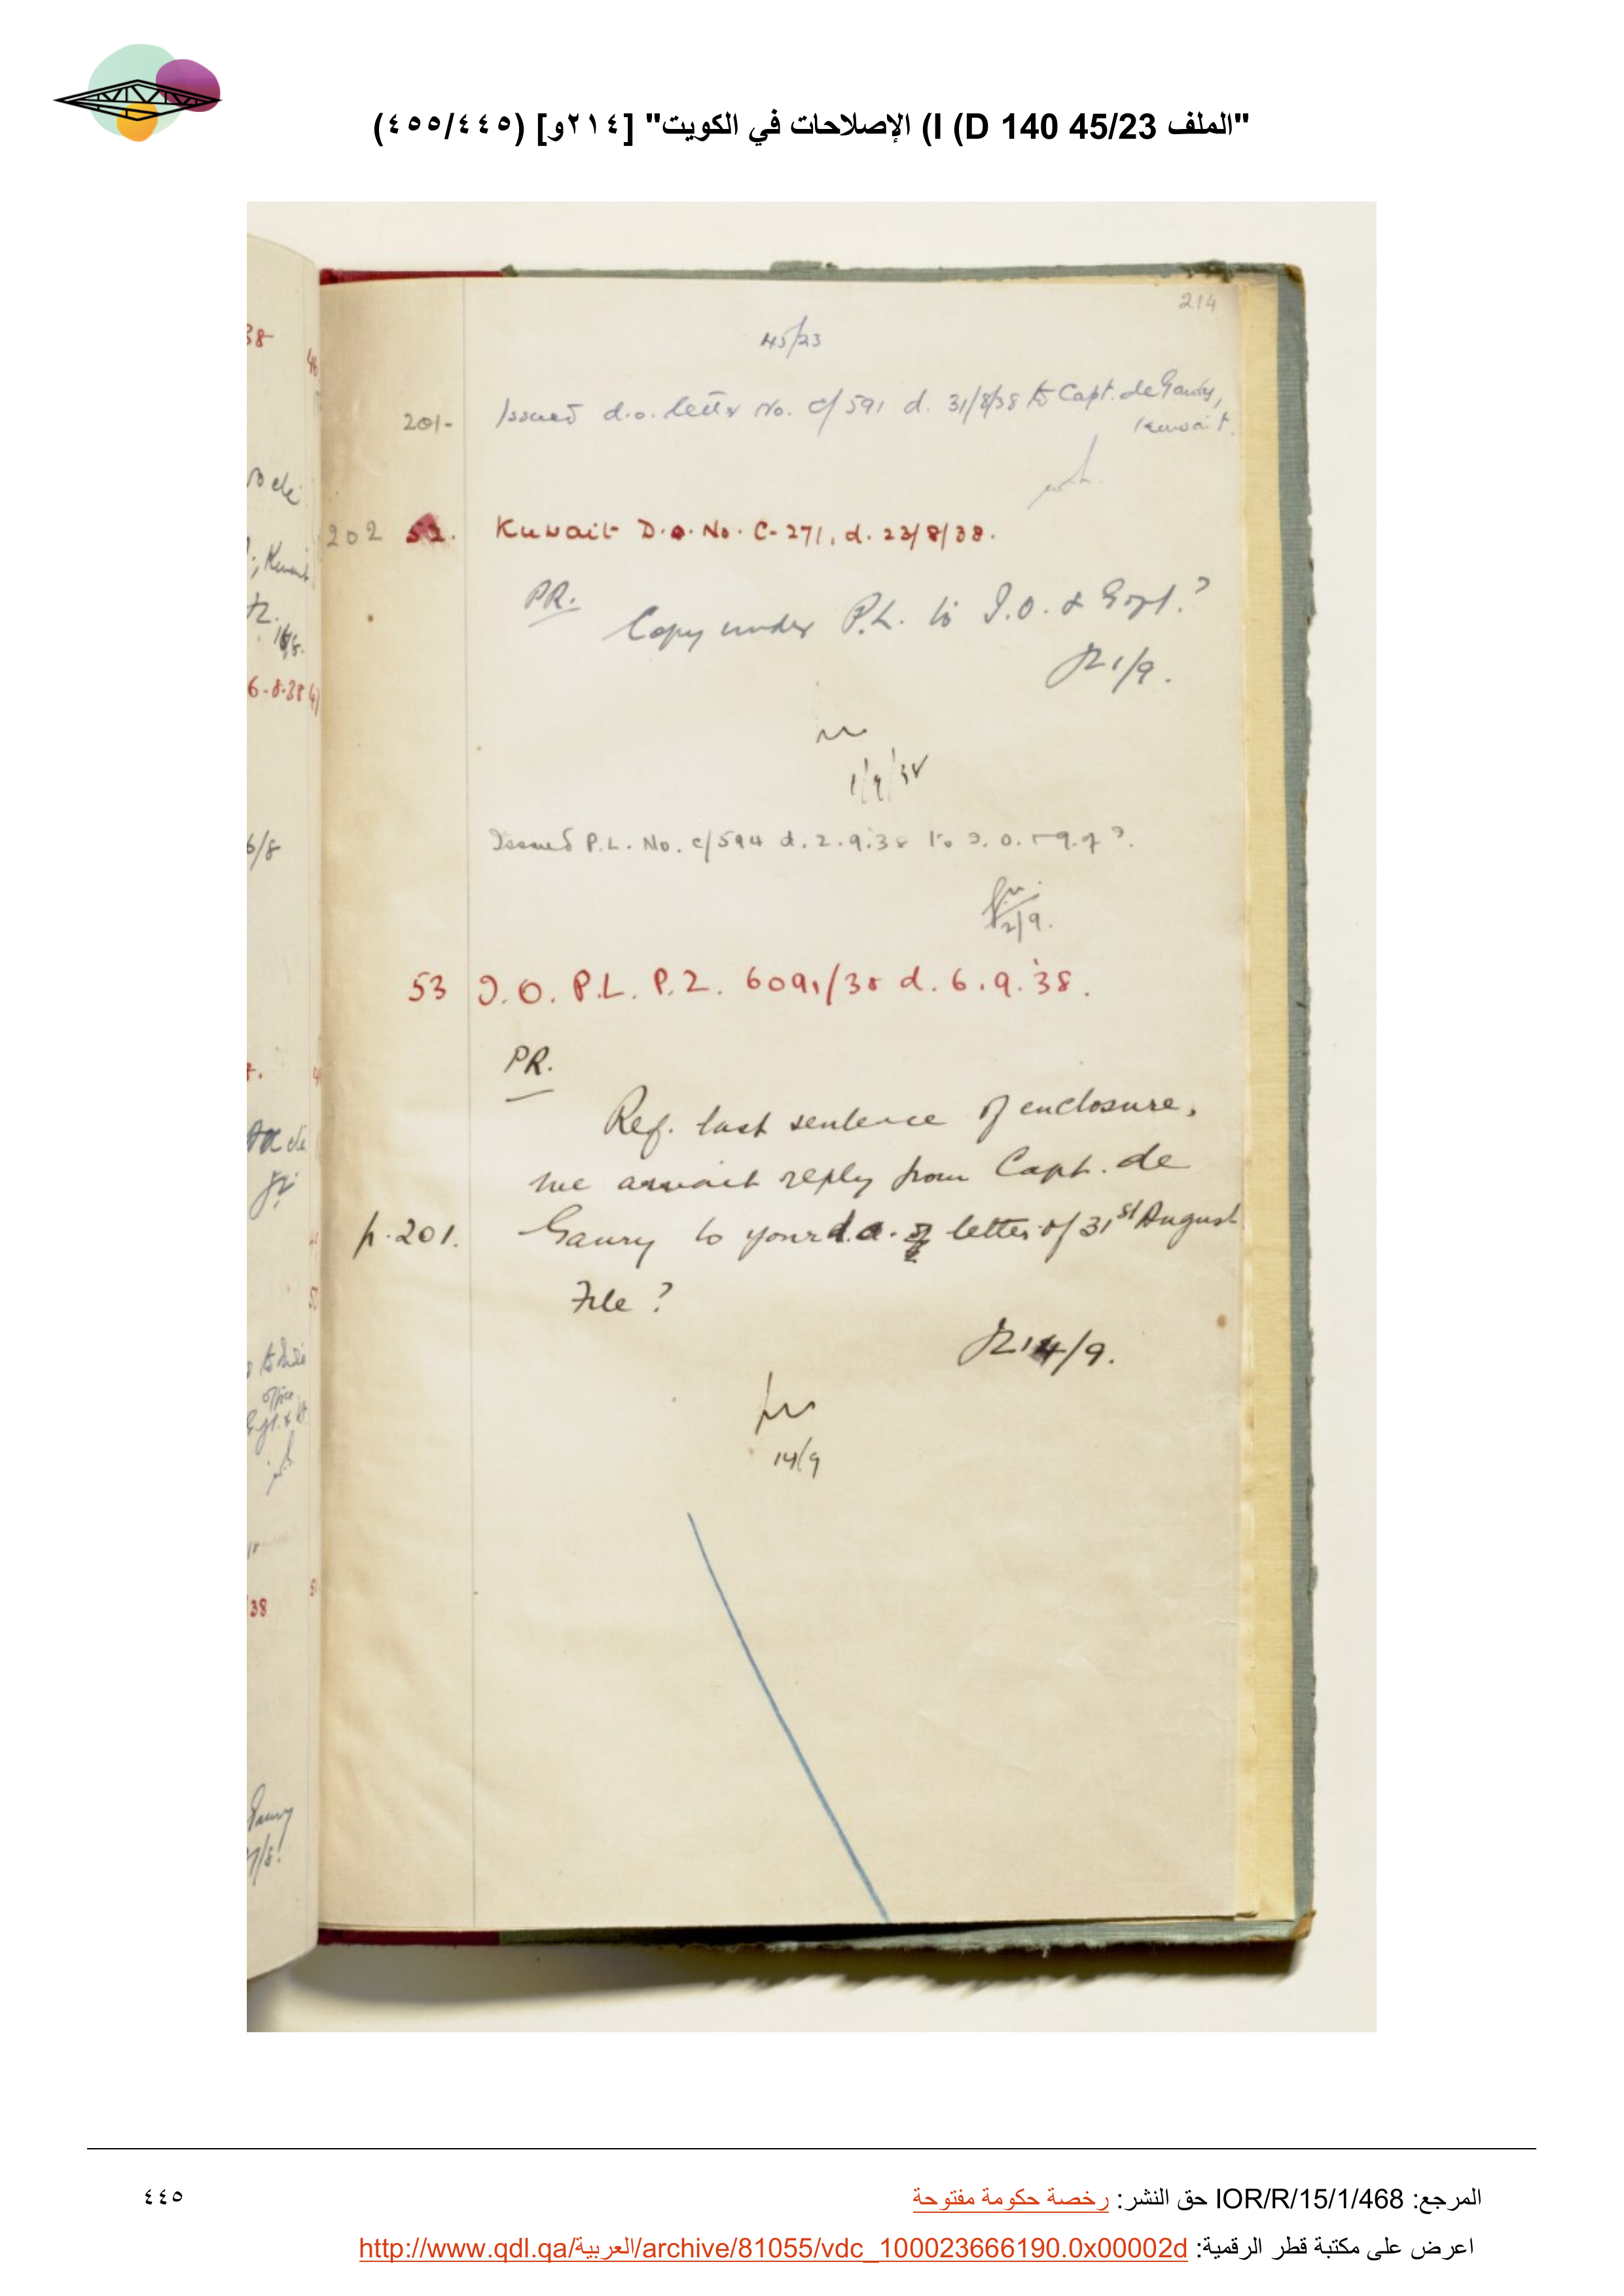 "الملف 45/23 I (D 140) الإصلاحات في الكويت" [٢١٤و] (٤٥٥/٤٤٥)
214
45/23
201- Issued d.o. letter No. C/591 d. 31/8/38 to Capt. de Gaury,
Kuwait.
202 52. Kuwait D.O. No. C-271, d. 23/8/38.
PR.
Copy under P.L. to I.O. & Govt.?
1/9.
1/9/38
Issued P.L. No. C/594 d. 2.9.38 to I.O.
2/9.
53 I.O. P.L. P.Z. 6091/38 d. 6.9.38.
PR.
Ref. last sentence of enclosure,
we await reply from Capt. de
p. 201. Gaury to your d.o. letter of 31st August
File?
14/9.
14/9
المرجع: IOR/R/15/1/468 حق النشر: رخصة حكومة مفتوحة
٤٤٥
اعرض على مكتبة قطر الرقمية: http://www.qdl.qa/العربية/archive/81055/vdc_100023666190.0x00002d